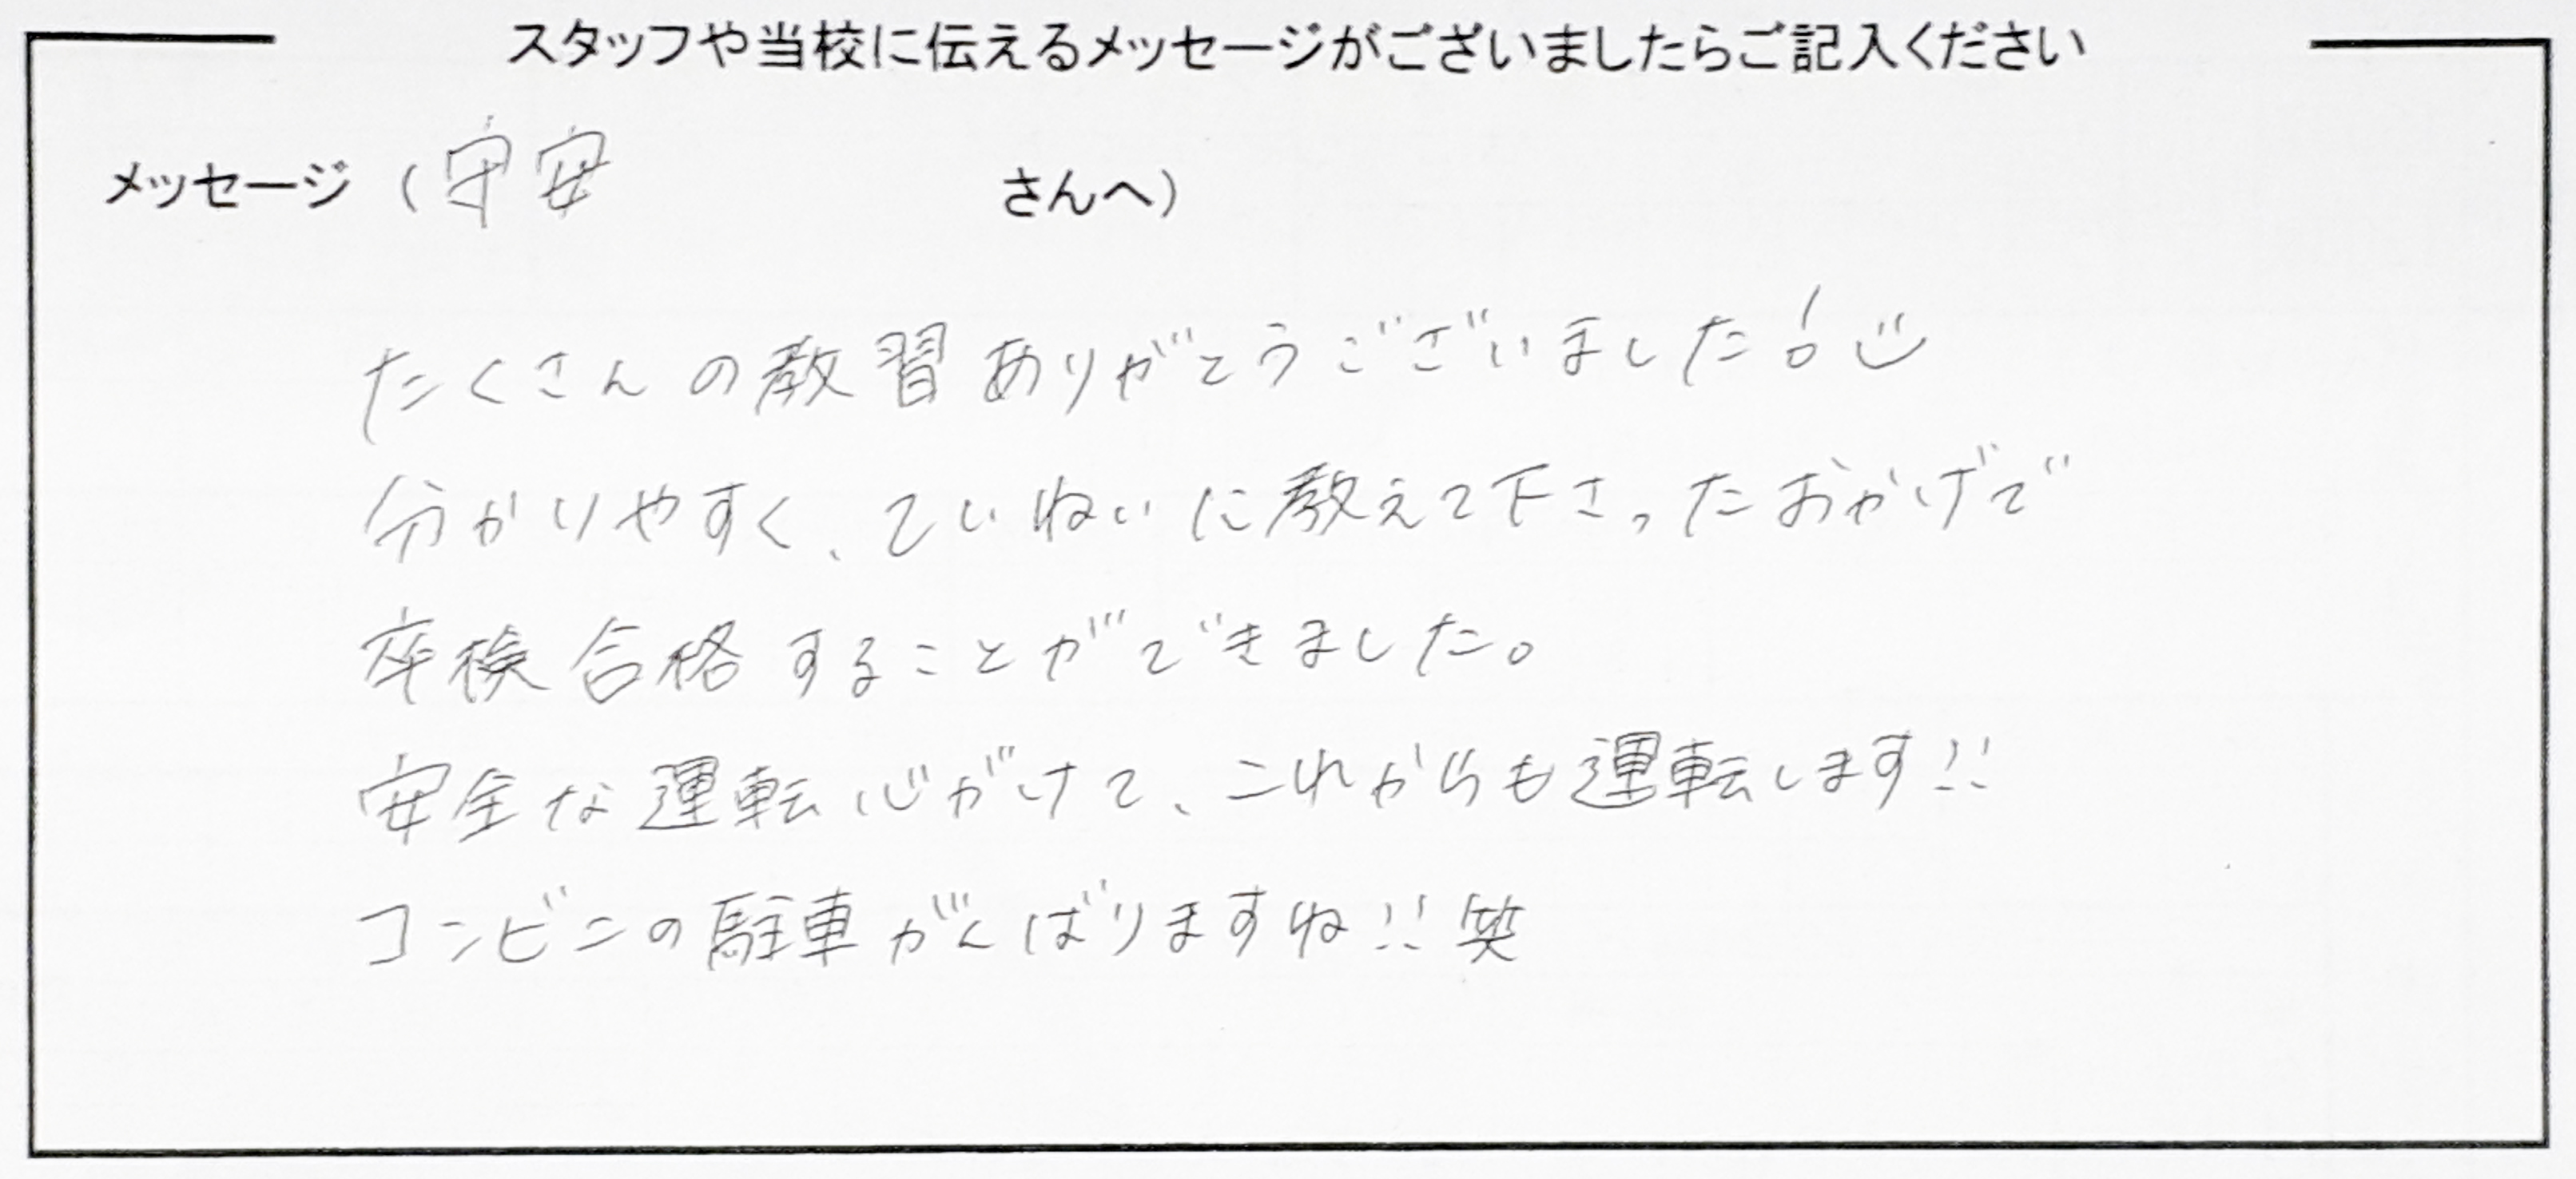 スタッフや当校に伝えるメッセージがございましたらご記入ください
メッセージ（守安 さんへ）
たくさんの教習ありがとうございました!
分かりやすく、ていねいに教えて下さったおかげで
卒検合格することができました。
安全な運転心がけて、これからも運転します!!
コンビニの駐車がんばりますね!!笑